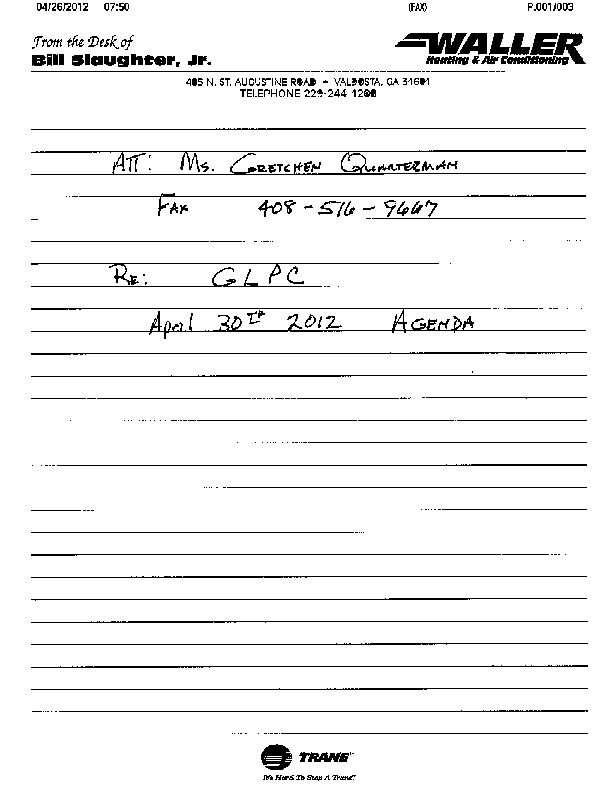 04/26/2012 07:50 (FAX) P.001/003
From the Desk of
Bill Slaughter, Jr.
WALLER
Heating & Air Conditioning
405 N. ST. AUGUSTINE ROAD - VALDOSTA, GA 31601
TELEPHONE 229-244-1200
ATT: Ms. GRETCHEN QUARTERMAN
FAX 408-516-9667
RE: GLPC
April 30TH 2012 AGENDA
TRANE
It's Hard To Stop A Trane.